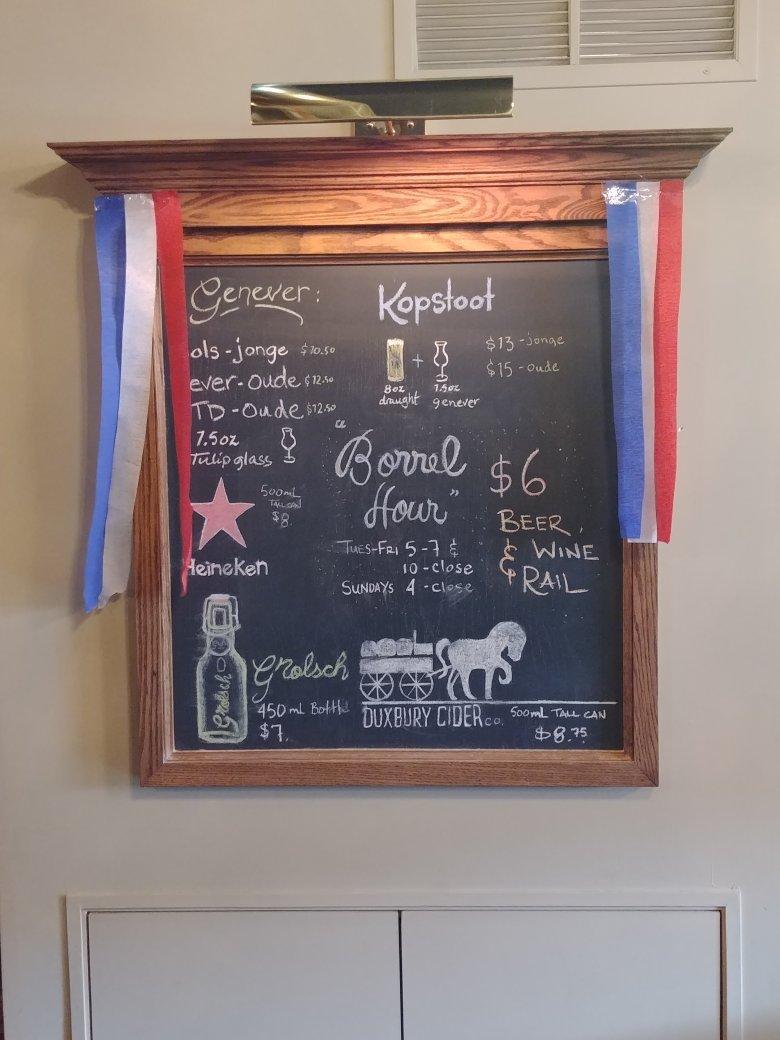 Genever:
ols - jonge $10.50
ever - oude $12.50
TD - oude $12.50
1.5oz
Tulip glass
Kopstoot
+
8oz draught
1.5oz genever
$13 - jonge
$15 - oude
500mL
TALL CAN
$8.
Heineken
"Borrel
Hour"
TUES-FRI 5-7 &
10 - close
SUNDAYS 4 - close
$6
BEER,
& WINE
RAIL
Grolsch
Grolsch
450 mL Bottle
$7.
DUXBURY CIDER CO.
500mL TALL CAN
$8.75